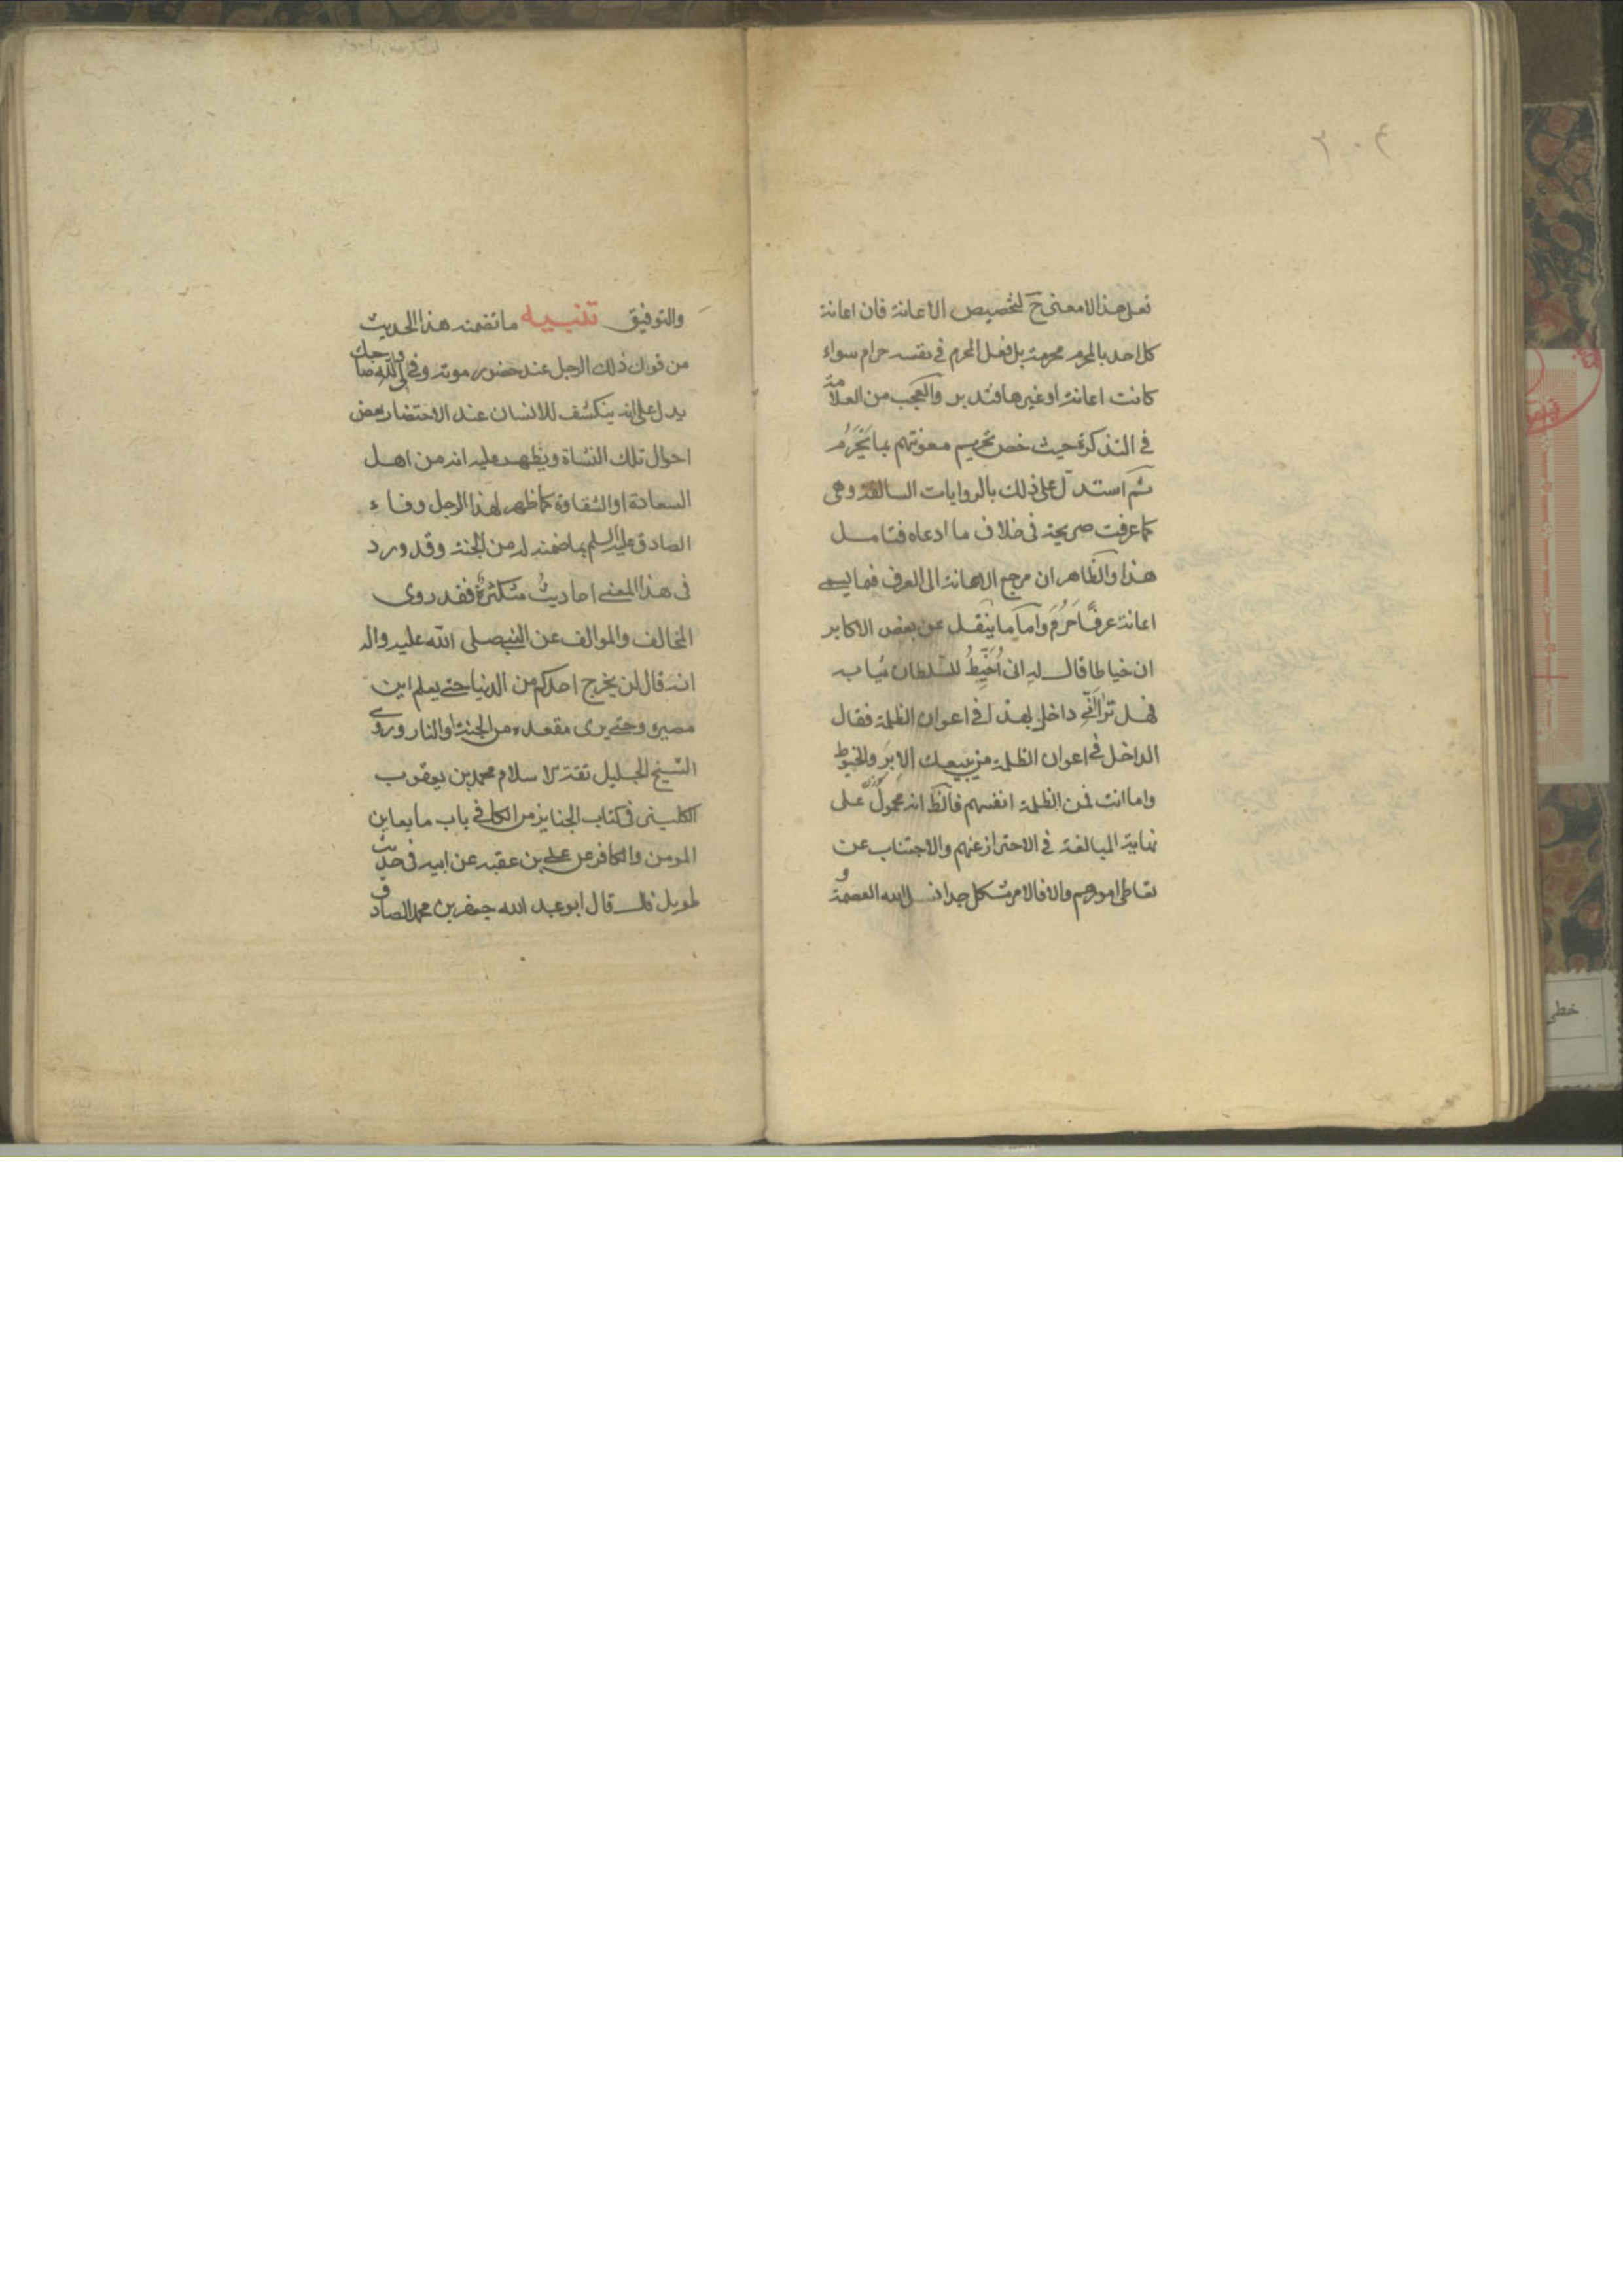 ٣٠٤
فعلى هذا لا معنى ح لتخصيص الاعانة فان اعانة
كل احد بالمحرم محرمة بل فعل المحرم في نفسه حرام سواء
كانت اعانة او غيرها فتدبر والعجب من العلامة
في التذكرة حيث خص تحريم معونتهم بما يَحْرُمُ
ثم استدل على ذلك بالروايات السالفة وهى
كما عرفت صريحة فى خلاف ما ادعاه فتامل
هذا والظاهر ان مرجع الاعانة الى العرف فما يسمى
اعانة عرفًا حَرُمَ وامّا ما يُنقل عن بعض الاكابر
ان خياطا قال له انى اُخَيِّطُ للسّلطان ثيابه
فهل ترانى داخلا بهذا فى اعوان الظلمة فقال
الداخل فى اعوان الظلمة من يبيعك الاِبَرَ والخيوط
واما انت فمن الظلمة انفسهم فالظ انه محمولٌ على
نهاية المبالغة فى الاحتراز عنهم والاجتناب عن
تعاطى امورهم والا فالامر مشكل جدا نسل الله العصمة و
والتوفيق تنبيه ما تضمنه هذا الحديث
من قول ذلك الرجل عند حضور موته وفى لى والله صاحبك
يدل على انه ينكشف للانسان عند الاحتضار بعض
احوال تلك النشاة ويظهر عليه انه من اهل
السعادة او الشقاوة كما ظهر لهذا الرجل وفاء
الصادق عليه السلم بما ضمنه له من الجنة وقد ورد
فى هذا المعنى احاديثُ متكثرةٌ فقد روى
المخالف والموالف عن النبى صلى الله عليه واله
انه قال لن يخرج احدكم من الدنيا حتى يعلم اين
مصيره وحتى يرى مقعده من الجنة او النار وروى
الشيخ الجليل ثقة الاسلام محمد بن يعقوب
الكلينى فى كتاب الجنايز من الكافى باب ما يعاين
المومن والكافر عن على بن عقبه عن ابيه فى حديث
طويل قال قال ابو عبد الله جعفر بن محمد الصادق
خطى